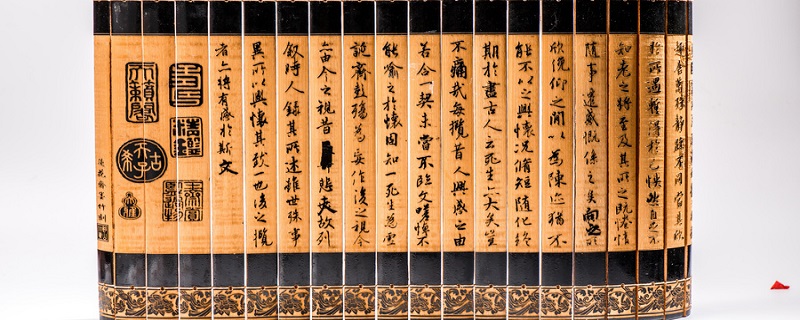 趣舍萬殊靜躁不同當其欣
於所遇暫得於己快然自足不
知老之將至及其所之既惓情
隨事遷感慨係之矣向之所
欣俛仰之閒以為陳迹猶不
能不以之興懷況脩短隨化終
期於盡古人云死生亦大矣豈
不痛哉每攬昔人興感之由
若合一契未嘗不臨文嗟悼不
能喻之於懷固知一死生為虛
誕齊彭殤為妄作後之視今
亦由今之視昔悲夫故列
叙時人錄其所述雖世殊事
異所以興懷其致一也後之攬
者亦將有感於斯文